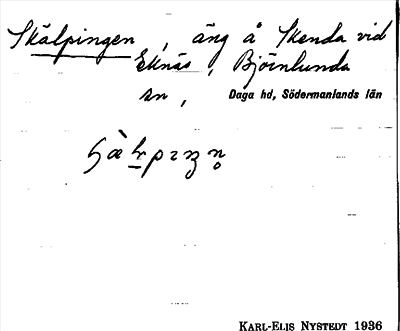 Skälpingen, äng å Skenda vid
Eknäs, Björnlunda
sn, Daga hd, Södermanlands län
KARL-ELIS NYSTEDT 1936